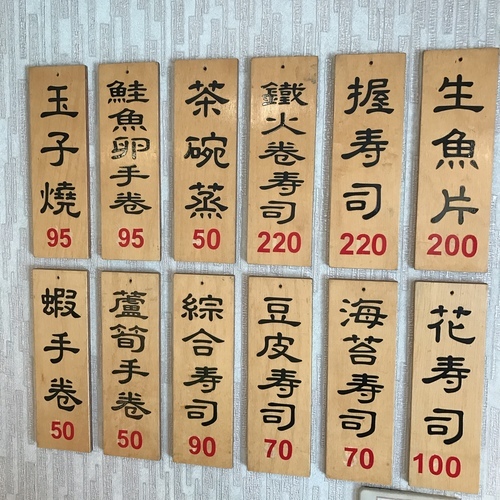 生魚片
200
握寿司
220
鐵火卷寿司
220
茶碗蒸
50
鮭魚卵手卷
95
玉子燒
95
花寿司
100
海苔寿司
70
豆皮寿司
70
綜合寿司
90
蘆筍手卷
50
蝦手卷
50